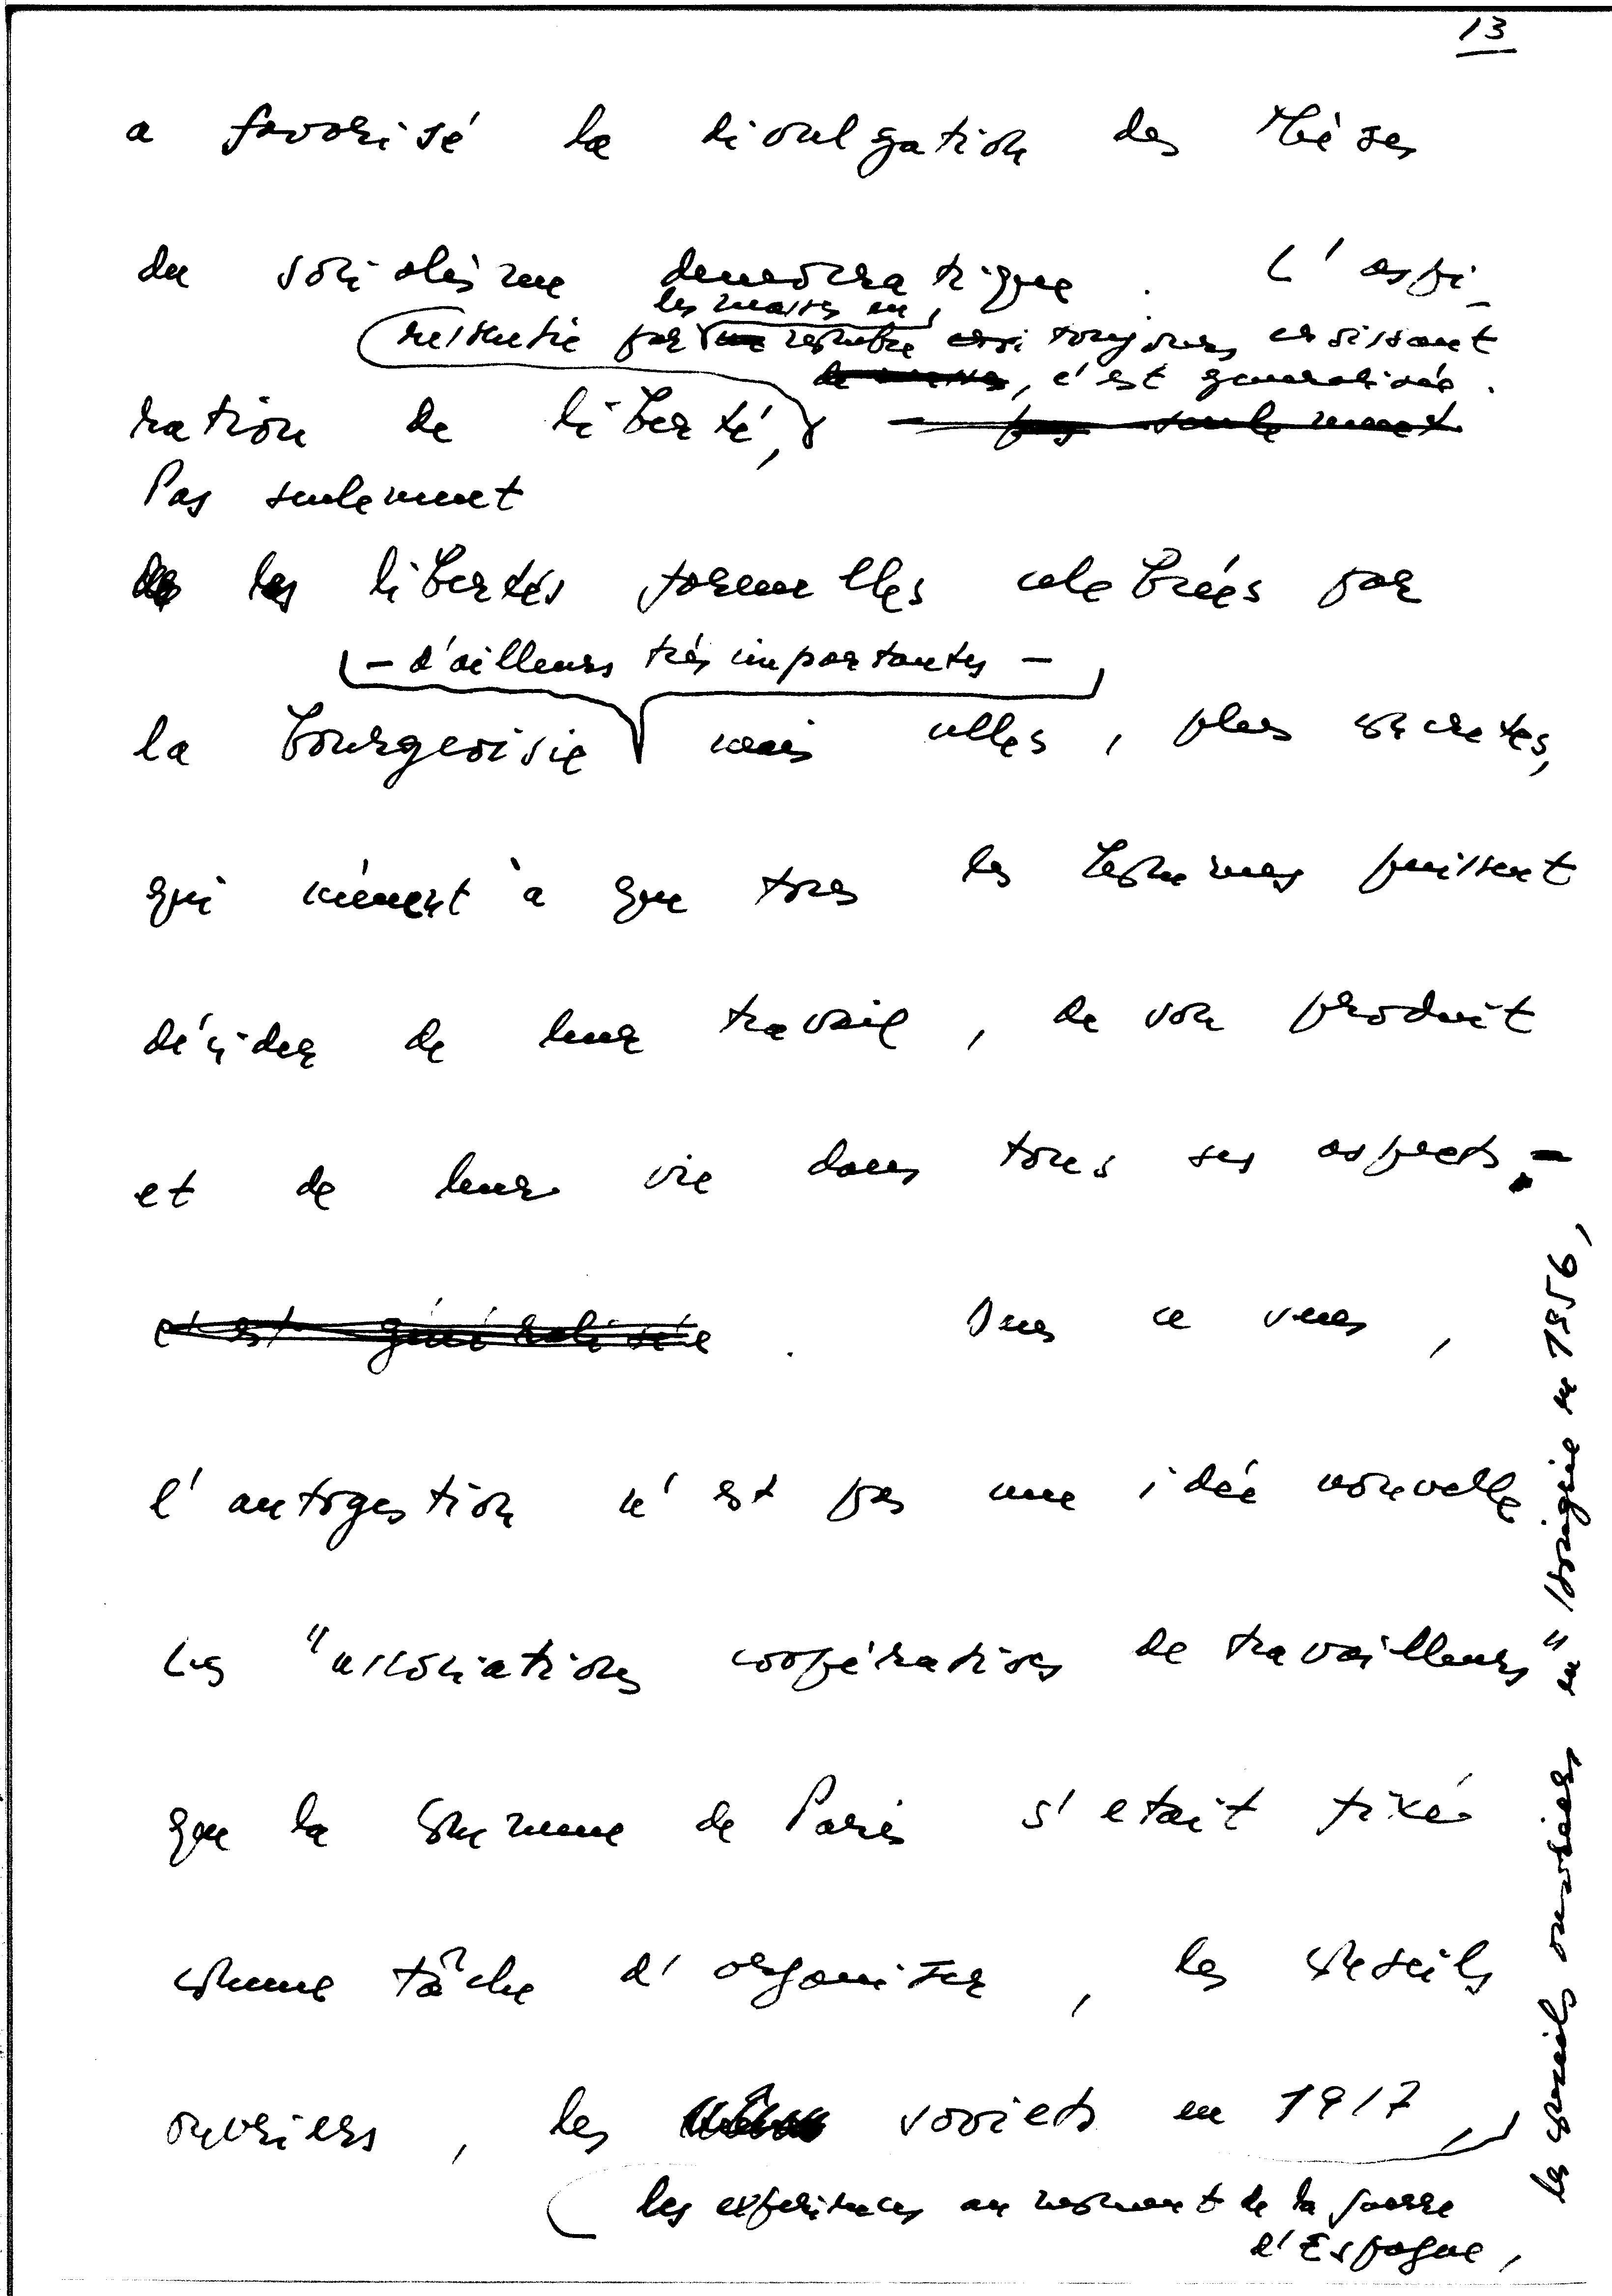 13
a favorisé la divulgation des thèses
du socialisme democratique. L'aspi-
les masses en
ressentie par une nombre toujours croissant
de masses, c'est generalisée.
ration de liberté, pas seulement
Pas seulement
de les libertés formelles celebrées par
- d'ailleurs très importantes -
la bourgeoisie mais celles, plus concretes,
qui mènent à que tous les hommes puissent
décider de leur travail, de son produit
et de leur vie dans tous ses aspects.-
c'est généralisée. Dans ce sens,
l'autogestion n'est pas une idée nouvelle
Les "associations coopératives de travailleurs"
que la Commune de Paris s'etait fixée
comme tâche d'organiser, les conseils
ouvriers, les soviets en 1917,
les expériences au moment de la guerre
d'Espagne,
les conseils ouvriers en Hongrie en 1956,